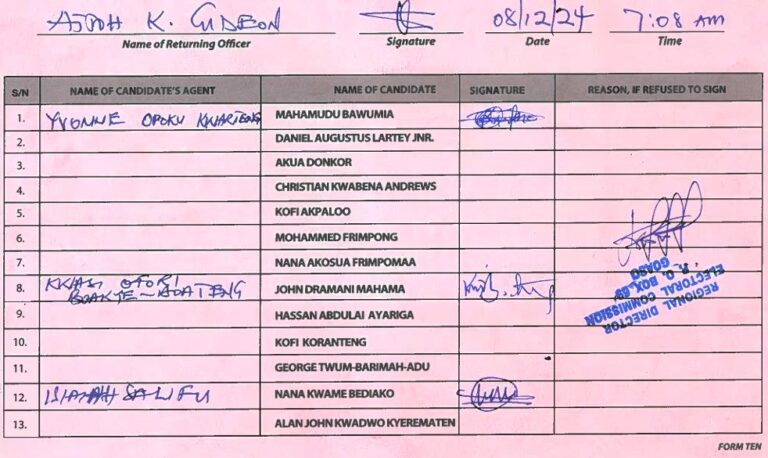 K. GIDEON
08/12/24
7:08 AM
Name of Returning Officer
Signature
Date
Time
S/N
NAME OF CANDIDATE'S AGENT
NAME OF CANDIDATE
SIGNATURE
REASON, IF REFUSED TO SIGN
1.
YVONNE OPOKU KWARTENG
MAHAMUDU BAWUMIA
2.
DANIEL AUGUSTUS LARTEY JNR.
3.
AKUA DONKOR
4.
CHRISTIAN KWABENA ANDREWS
5.
KOFI AKPALOO
6.
MOHAMMED FRIMPONG
7.
NANA AKOSUA FRIMPOMAA
8.
OFORI
BOAKYE-BOATENG
JOHN DRAMANI MAHAMA
9.
HASSAN ABDULAI AYARIGA
10.
KOFI KORANTENG
11.
GEORGE TWUM-BARIMAH-ADU
12.
SALIFU
NANA KWAME BEDIAKO
13.
ALAN JOHN KWADWO KYEREMATEN
REGIONAL DIRECTOR
ELECTORAL COMMISSION
P. O. BOX
GOASO
FORM TEN